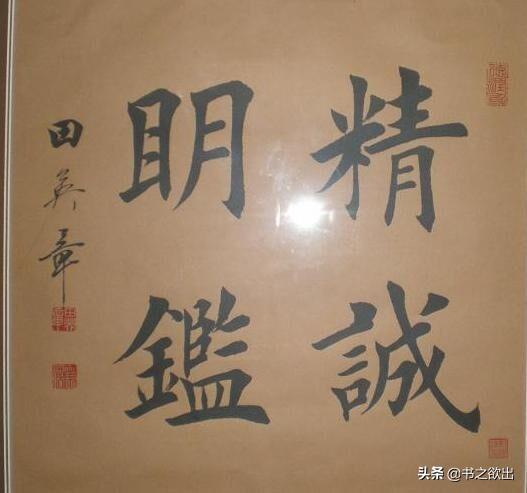 精誠
明鑑
田英章
头条 @书之欲出